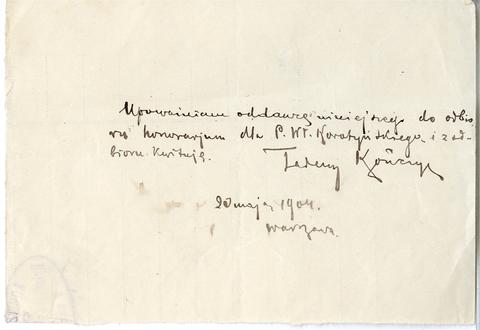 Upoważniam oddawcę niniejszego do odbio-
ru honorarjum dla P. Wł. Korotyńskiego, i z od-
bioru kwituję.
Tadeusz Kończyc
20 maja, 1904.
Warszawa.